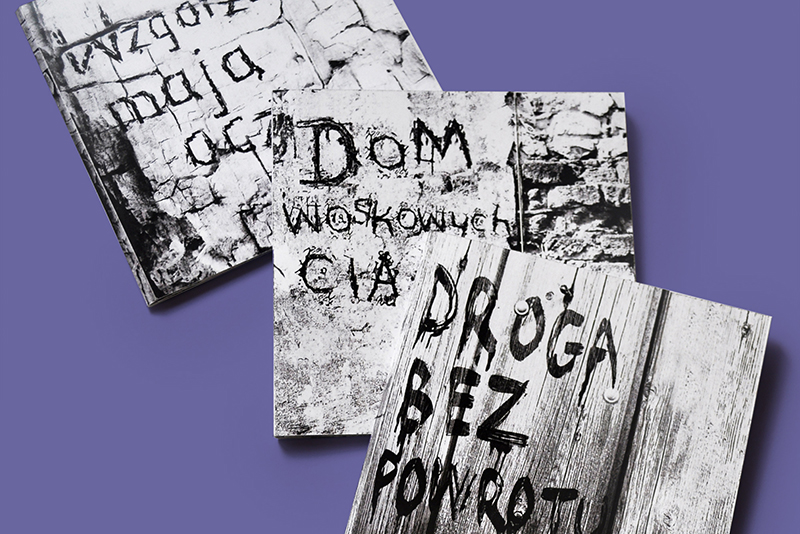 Wzgórz
mają
ocz
DOM
WOSKOWych
CIA
DROGA
BEZ
POWROTU